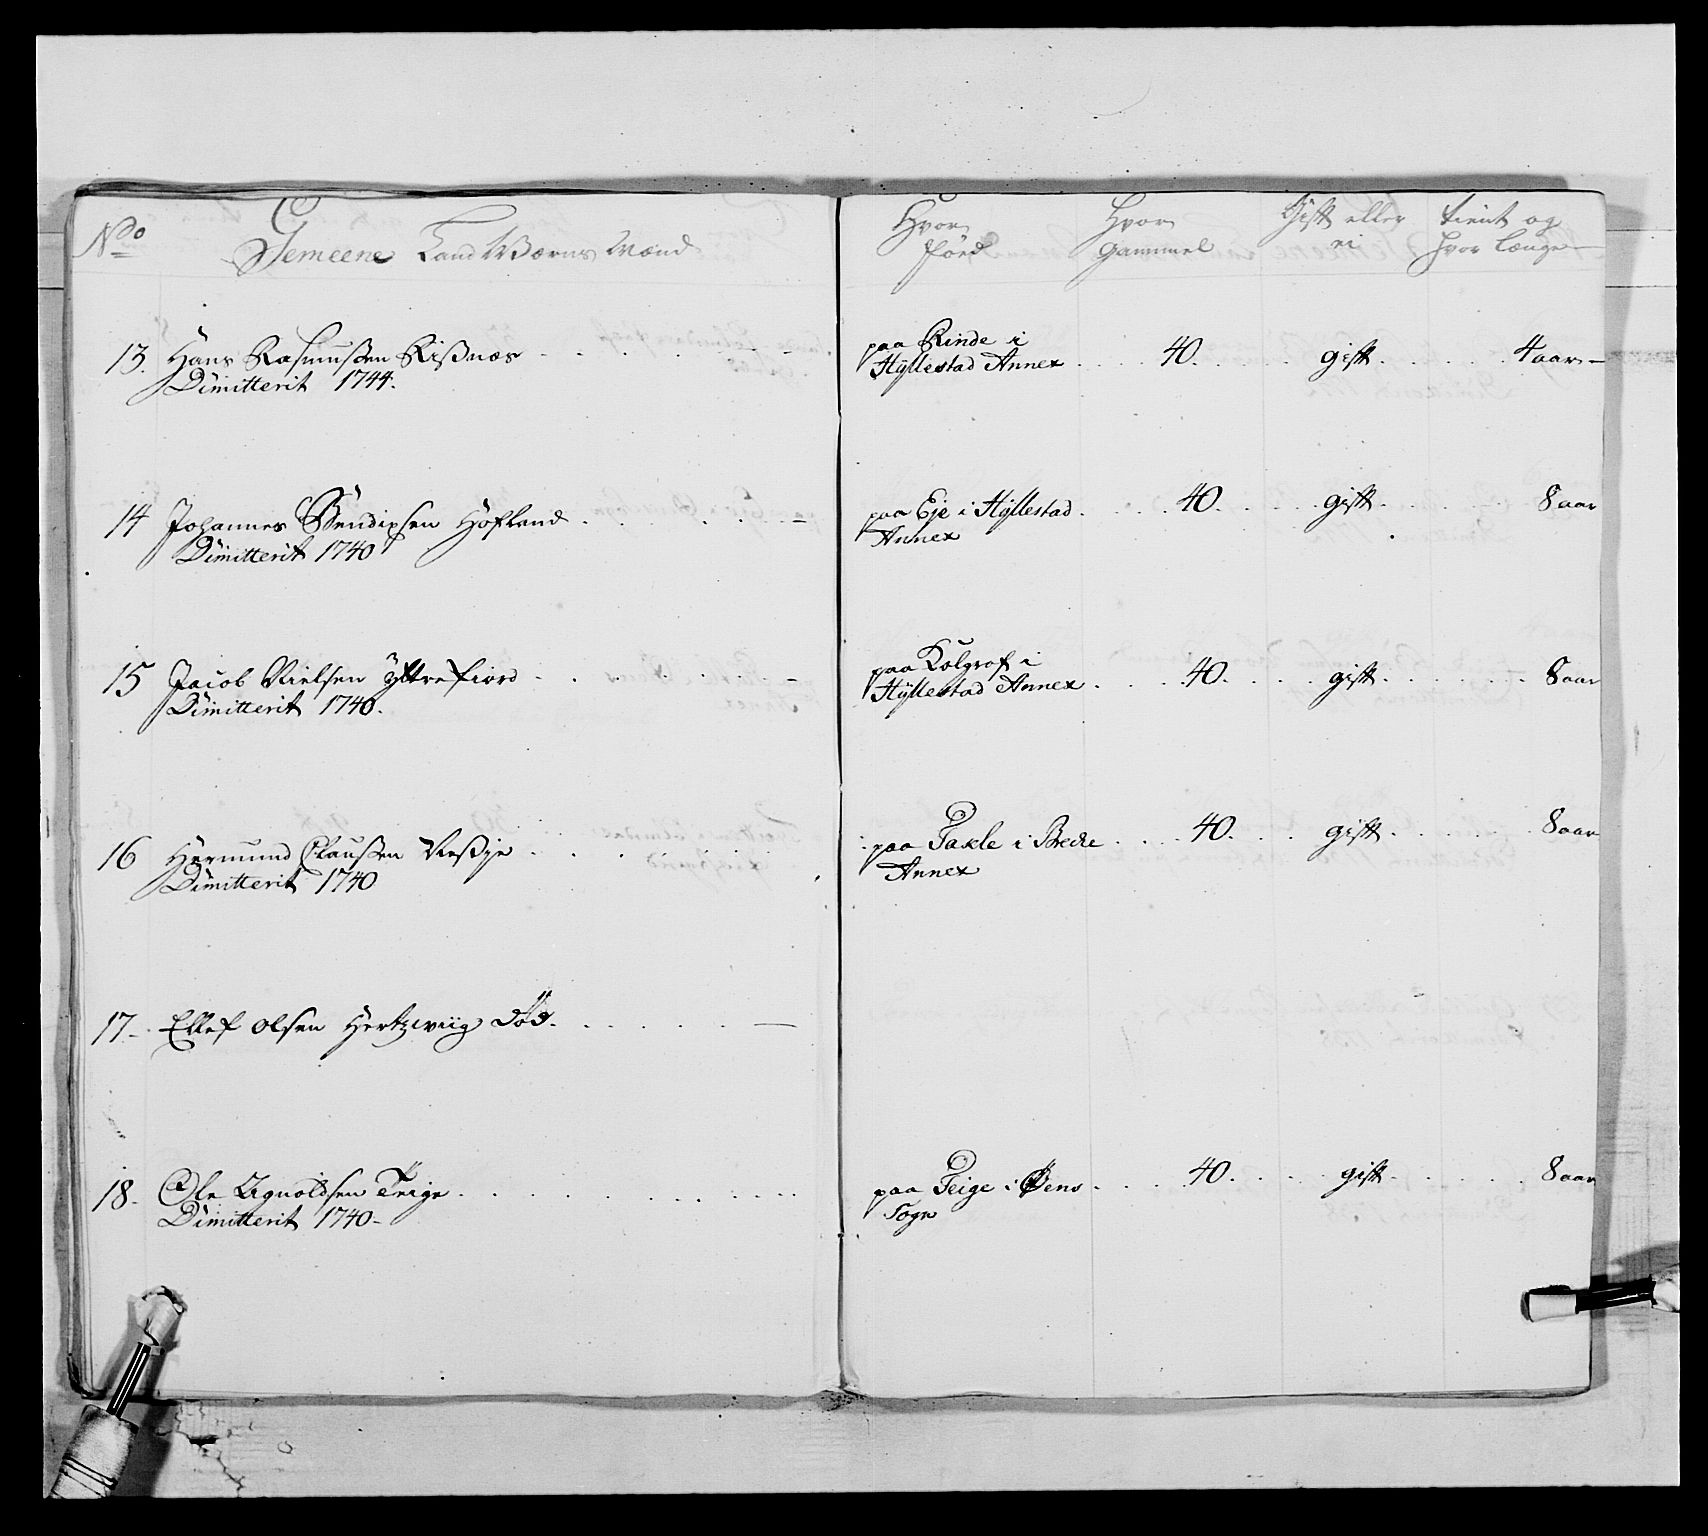 No
Gemeene Land Wærns Mænd
Hvor
föed
Hvor
gammel
Gift eller
ei
tient og
hvor længe
13. Hans Rasmusßen Rißnæs
Dimitterit 1744.
paa Rinde i
Hyllestad Annex
40.
gift
4 aar
14 Johannes Bendixsen Hofland
Dimitterit 1740
paa Eje i Hyllestad
Annex
40.
gift
8 aar
15 Jacob Nielsen Yttrefiord
Dimitterit 1740.
paa Kolgrof i
Hyllestad Annex
40.
gift
8 aar
16 Hermund Claußen
Dimitterit 1740
paa Takle i Brecke
Annex
40.
gift
8 aar
17. Ellef Olsen Hertzwiig död.
18. Ole Agnoldsen Teige
Dimitterit 1740
paa Teige i
Sogn
40.
gift
8 aar